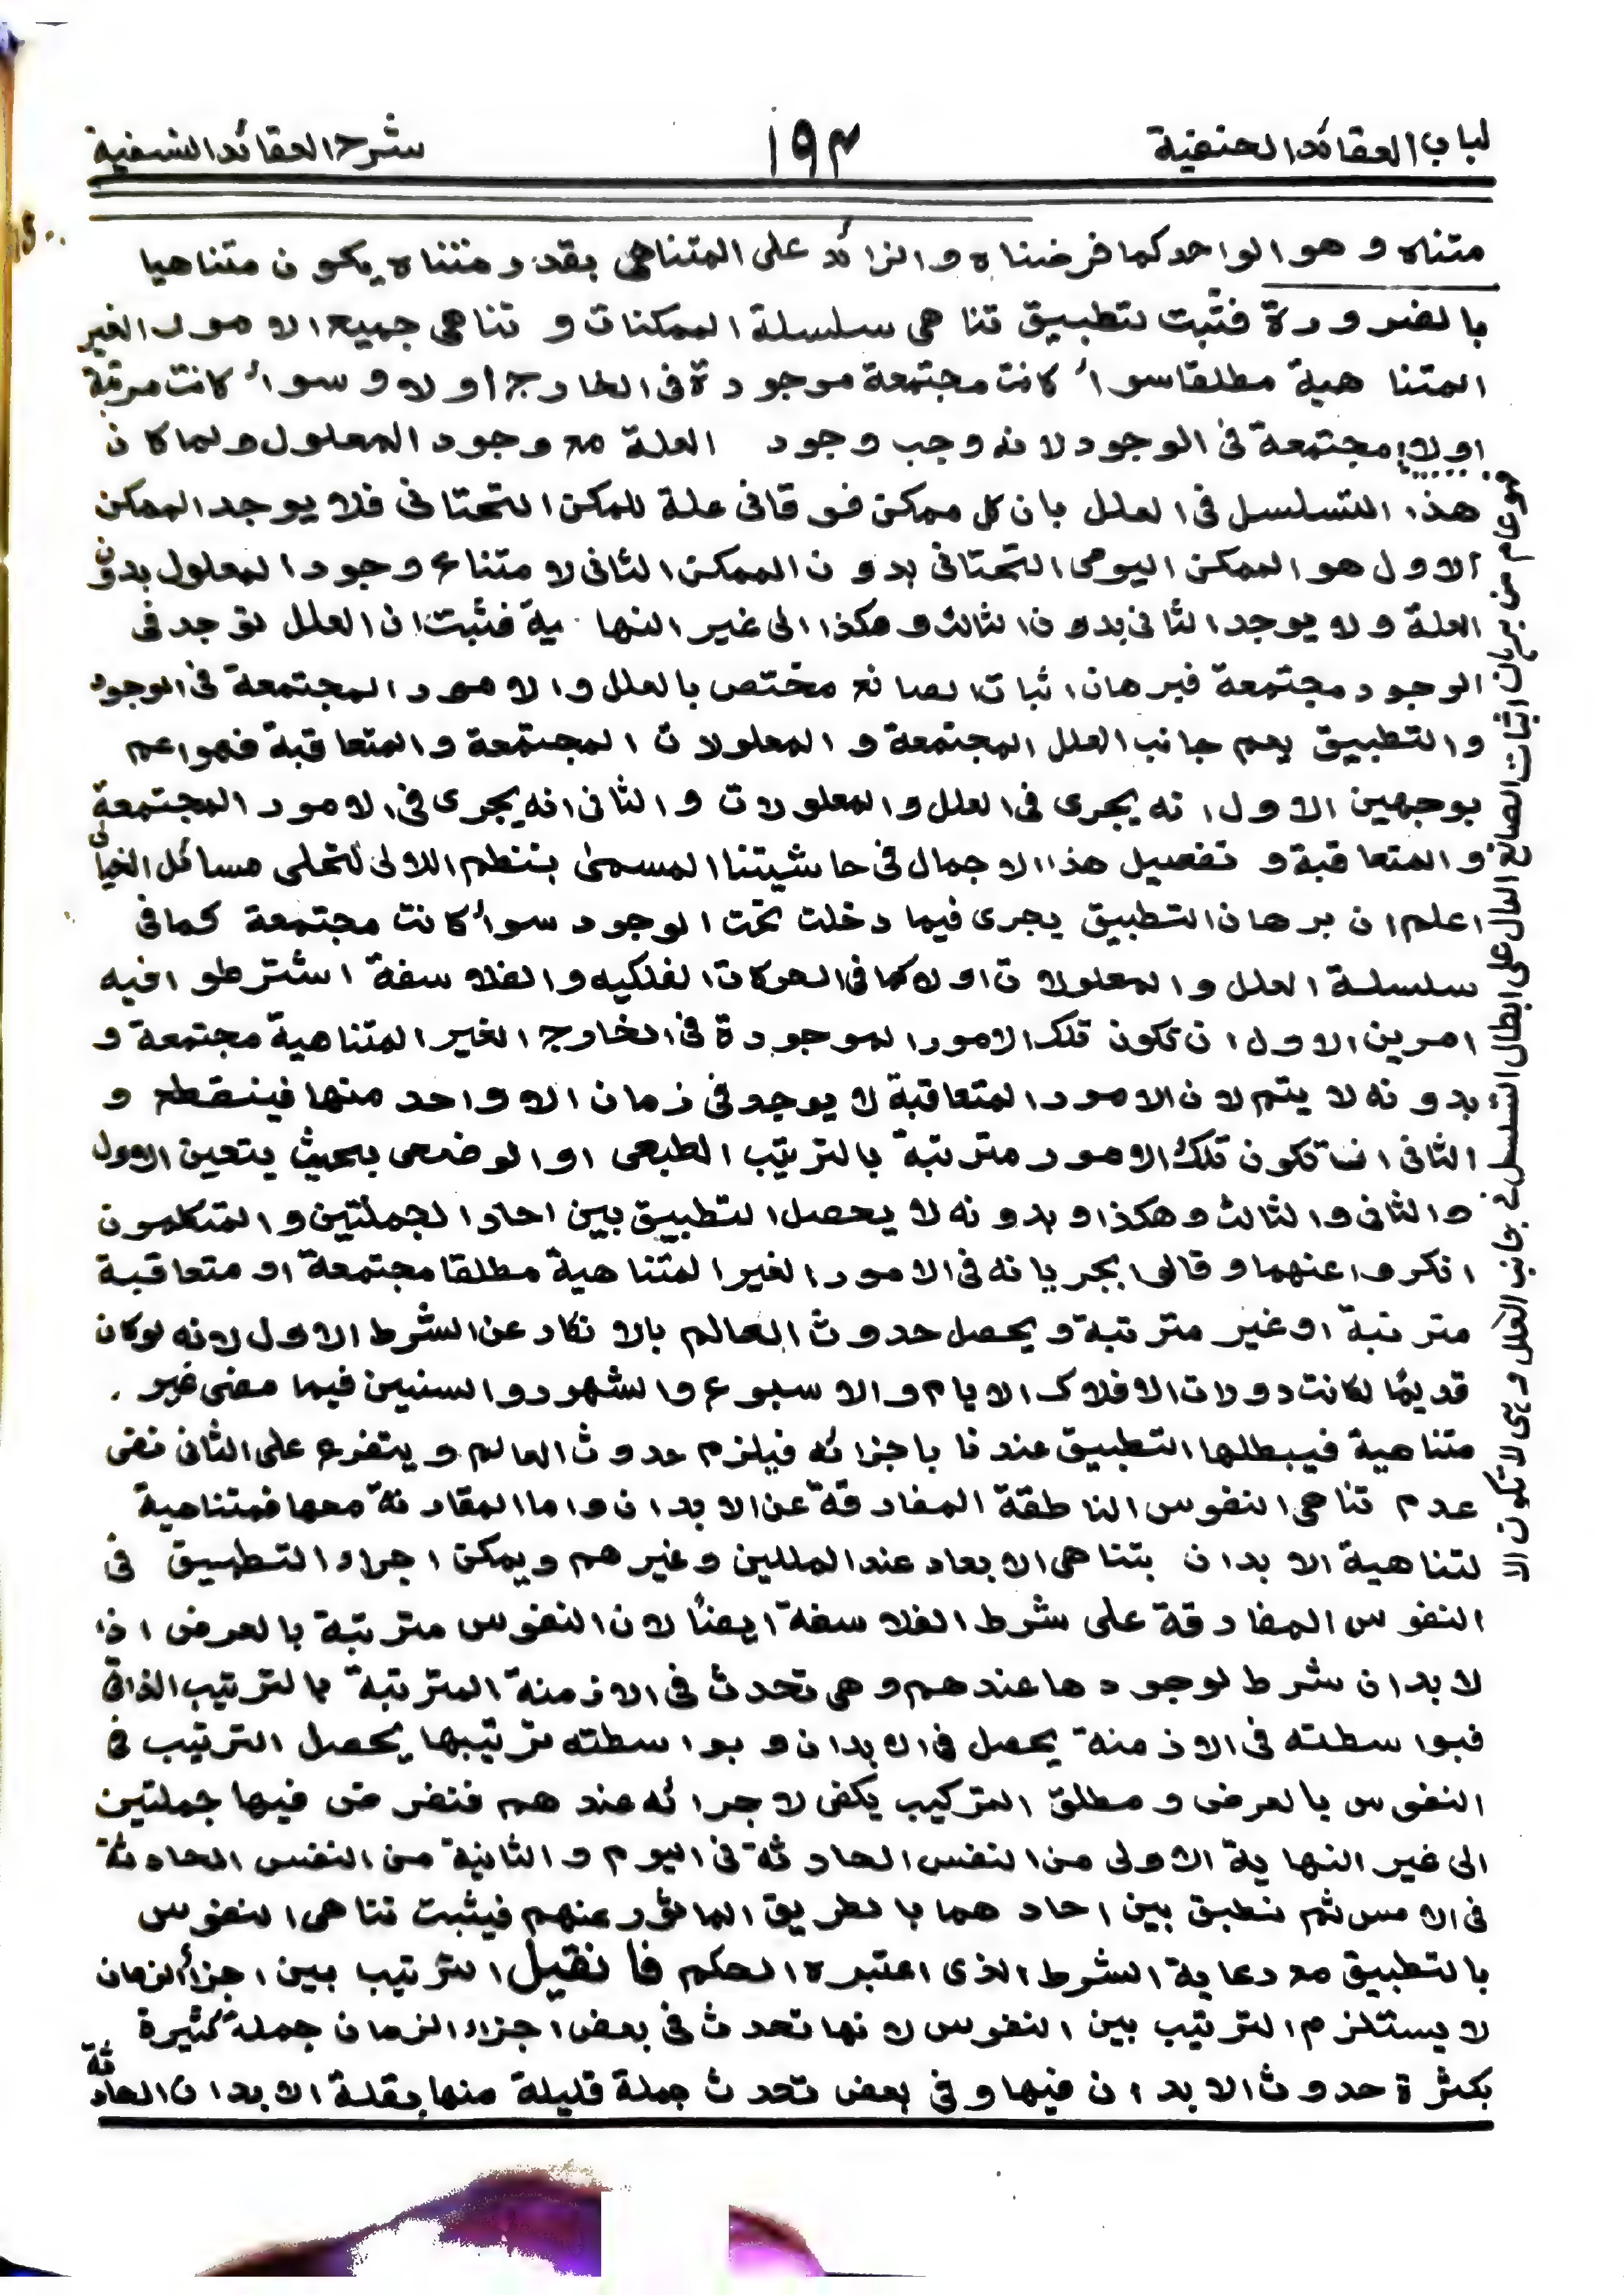 لباب العقائد الحنفية
١٩٣
شرح العقائد النسفية
متناه و هو الواحد كما فرضناه و الزائد على المتناهى بقدر متناه يكون متناهيا
بالضرورة فثبت لتطبيق تناهى سلسلة الممكنات و تناهى جميع الامور الغير
المتناهية مطلقا سواء كانت مجتمعة موجودة فى الخارج اولا و سواء كانت مرتبة
اولا مجتمعة فى الوجود لانه وجب وجود العلة مع وجود المعلول و لما كان
هذا التسلسل فى العلل بان كل ممكن فوقانى علة للمكن التحتانى فلا يوجد الممكن
الاول هو الممكن اليومى التحتانى بدون الممكن الثانى لامتناع وجود المعلول بدون
العلة و لا يوجد الثانى بدون الثالث و هكذا الى غير النهاية فثبت ان العلل توجد فى
الوجود مجتمعة فبرهان اثبات الصانع مختص بالعلل و الامور المجتمعة فى الوجود
و التطبيق يعم جانب العلل المجتمعة و المعلولات المجتمعة و المتعاقبة فهو اعم
بوجهين الاول انه يجرى فى العلل و المعلولات و الثانى انه يجرى فى الامور المجتمعة
و المتعاقبة و تفصيل هذا الاجمال فى حاشيتنا المسمى بتنظم اللالى لتحلى مسائل الخيالى
اعلم ان برهان التطبيق يجرى فيما دخلت تحت الوجود سواء كانت مجتمعة كما فى
سلسلة العلل و المعلولات اولا كما فى الحركات الفلكيه و الفلاسفة اشترطوا فيه
امرين الاول ان تكون تلك الامور الموجودة فى الخارج الغير المتناهية مجتمعة و
بدونه لا يتم لان الامور المتعاقبة لا يوجد فى زمان الا واحد منها فينقطع و
الثانى ان تكون تلك الامور مترتبة بالترتيب الطبعى او الوضعى بحيث يتعين الاول
و الثانى و الثالث و هكذا و بدونه لا يحصل التطبيق بين احاد الجملتين و المتكلمون
انكروا عنهما و قالوا بجريانه فى الامور الغير المتناهية مطلقا مجتمعة او متعاقبة
مترتبة او غير مترتبة و يحصل حدوث العالم بالانكار عن الشرط الاول لانه لو كان
قديمًا لكانت دورات الافلاك الايام و الاسبوع و الشهور و السنين فيما مضى غير
متناهية فيبطلها التطبيق عندنا باجزائه فيلزم حدوث العالم و يتفرع على الثانى نفى
عدم تناهى النفوس الناطقة المفارقة عن الابدان و اما المقارنة معها فمتناهية
لتناهية الابدان بتناهى الابعاد عند المليين و غيرهم و يمكن اجراء التطبيق فى
النفوس المفارقة على شرط الفلاسفة ايضًا لان النفوس مترتبة بالعرض اذ
لا بد ان شرط لوجودها عندهم و هى تحدث فى الازمنة المترتبة بالترتيب الذاتى
فبواسطته فى الازمنة يحصل فى الابدان و بواسطته ترتيبها يحصل الترتيب فى
النفوس بالعرض و مطلق التركيب يكفى لاجرائه عندهم فنفرض فيها جملتين
الى غير النهاية الاولى من النفس الحادثة فى اليوم و الثانية من النفس الحادثة
فى الامس ثم نطبق بين احادهما بالطريق الماثور عنهم فيثبت تناهى النفوس
بالتطبيق مع رعاية الشرط الذى اعتبره الحكم فان قيل الترتيب بين اجزاء الزمان
لا يستلزم الترتيب بين النفوس لانها تحدث فى بعض اجزاء الزمان جملة كثيرة
بكثرة حدوث الابدان فيها و فى بعض تحدث جملة قليلة منها بقلة الابدان الحادثة
هو عام من برهان اثبات الصانع الدال على ابطال التسلسل فى جانب العلل و هى لا تكون الا